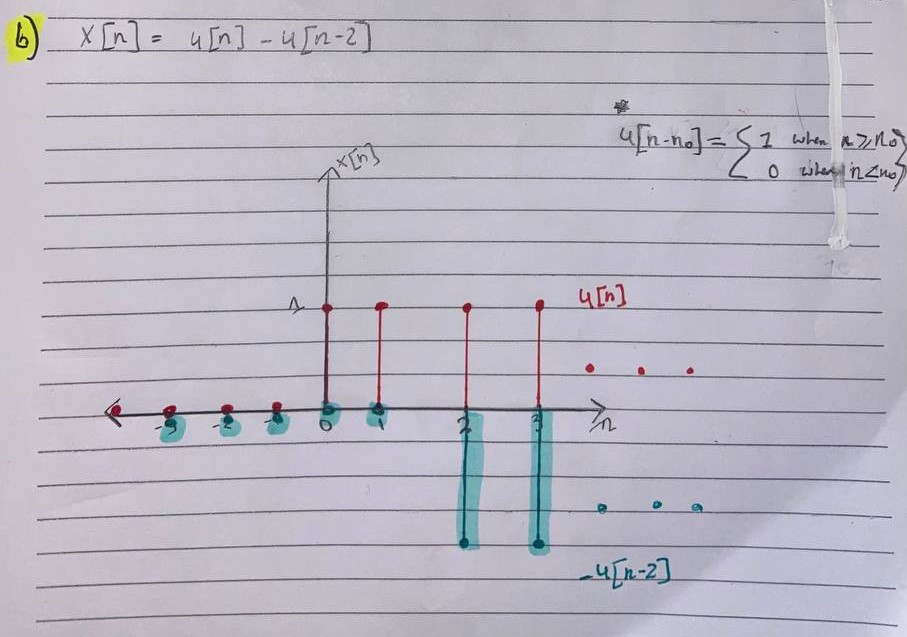 b) x[n] = u[n] - u[n-2]
*
u[n-n₀] = { 1 when n ≥ n₀ }
0 when n < n₀
x[n]
1 u[n]
. . .
-3 -2 -1 0 1 2 3 n
. . .
-u[n-2]